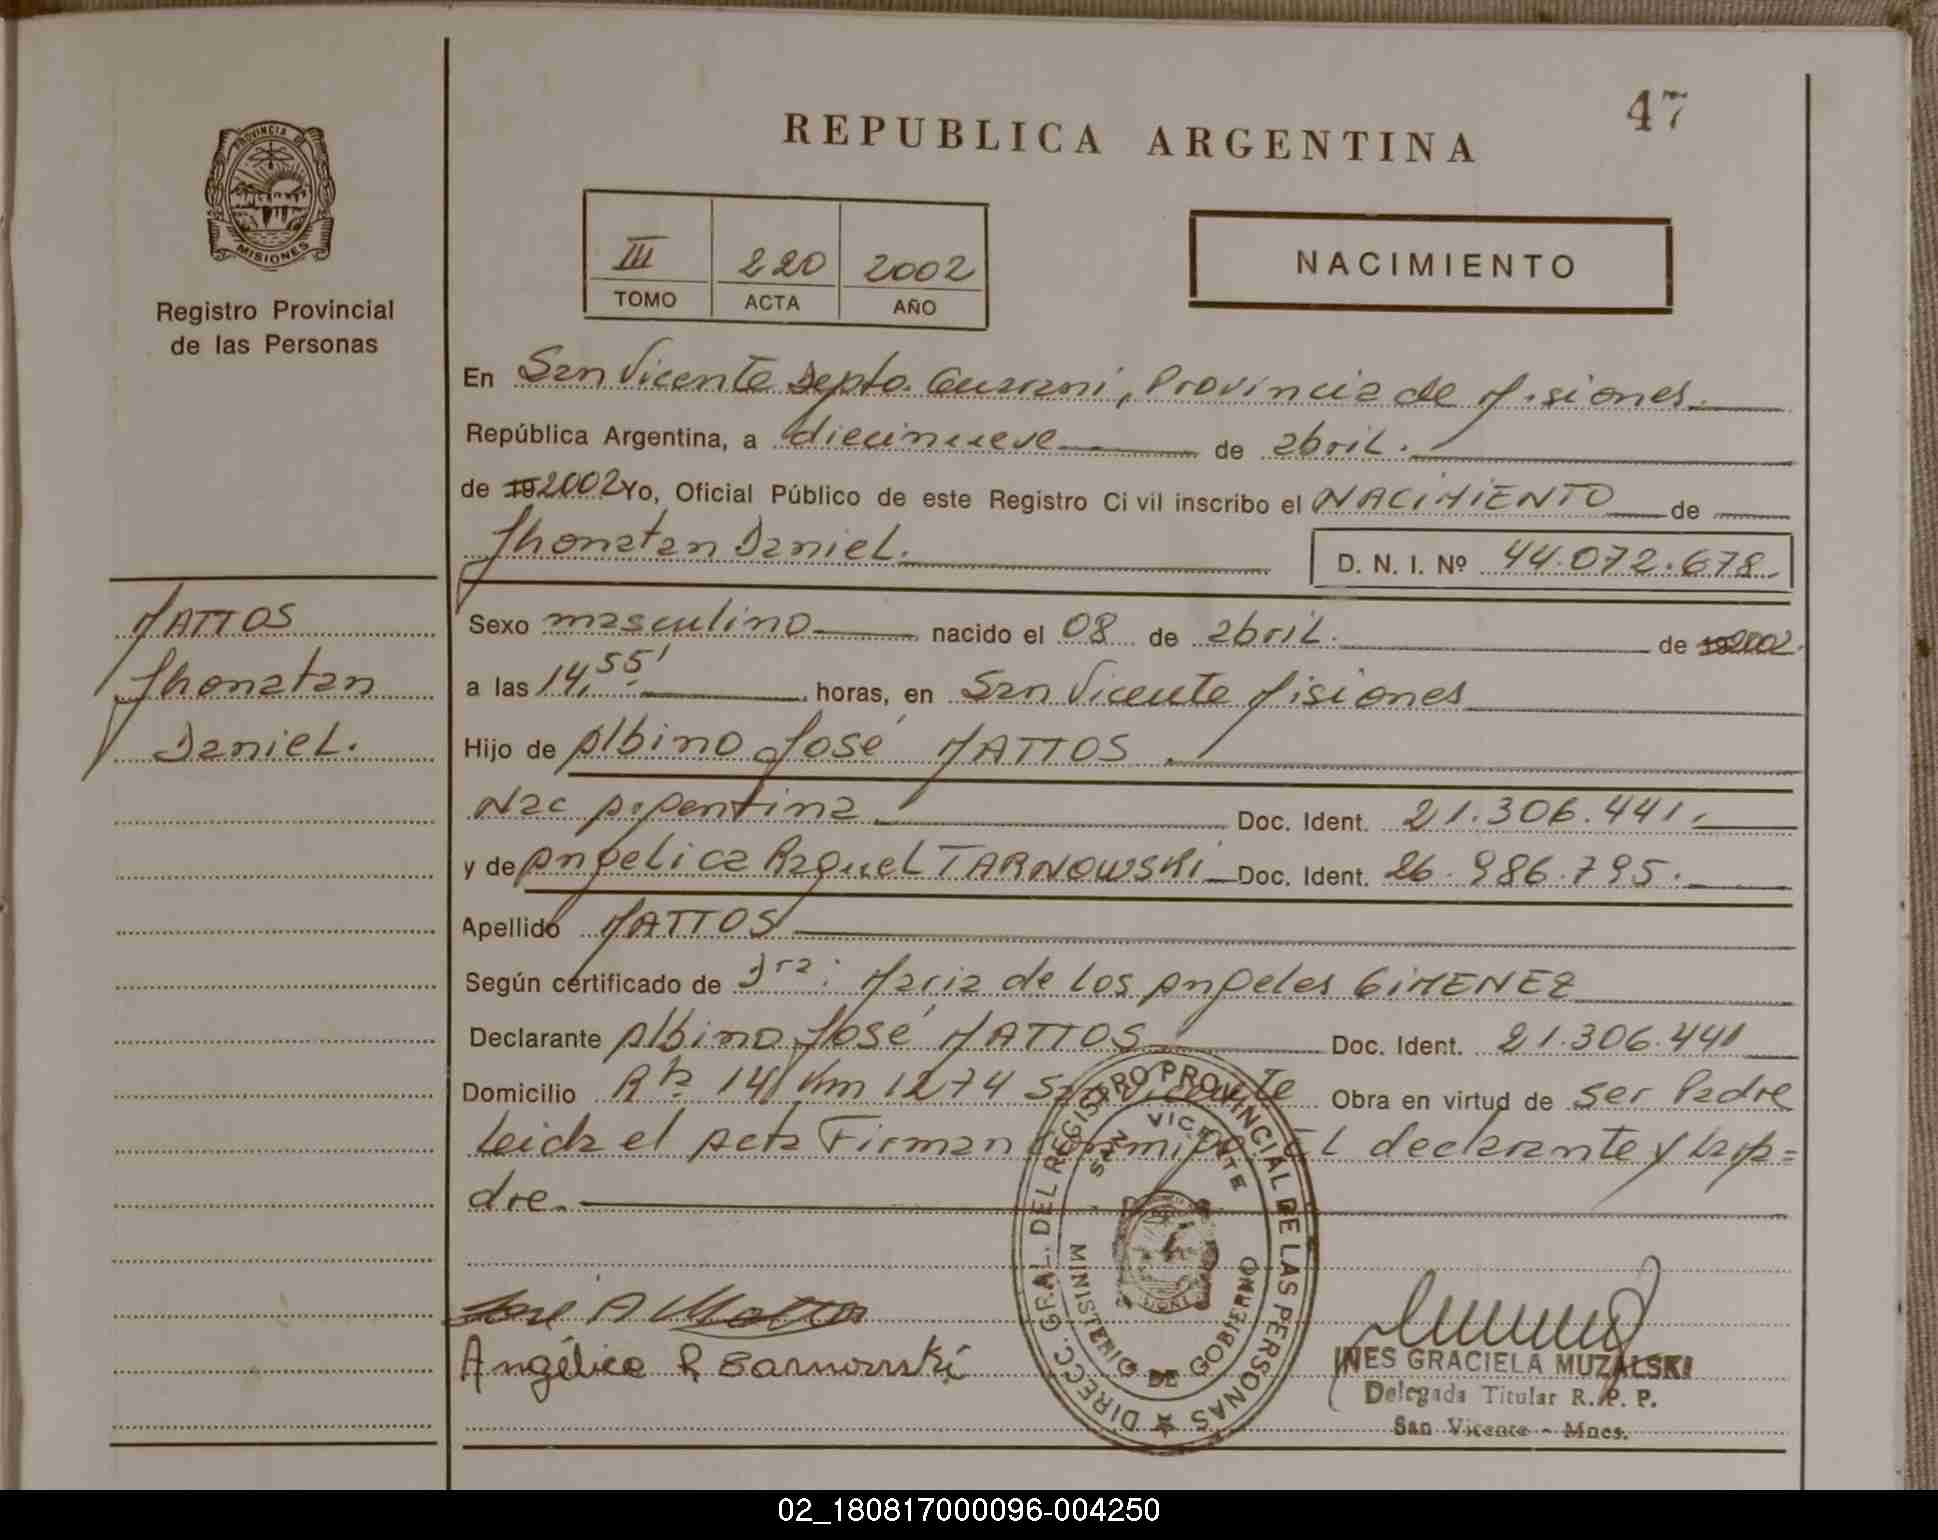 47
REPUBLICA ARGENTINA
PROVINCIA DE
MISIONES
Registro Provincial
de las Personas
III 220 2002
TOMO ACTA AÑO
NACIMIENTO
En San Vicente Depto. Guarani, Provincia de Misiones.
República Argentina, a diecinueve de abril.
de 19 2002 Yo, Oficial Público de este Registro Ci vil inscribo el NACIMIENTO de
Jhonatan Daniel.
D. N. I. Nº 44.072.678.
MATTOS
Jhonatan
Daniel.
Sexo masculino nacido el 08 de abril. de 19 2002.
a las 14,55' horas, en San Vicente Misiones
Hijo de Albino José MATTOS
Nac Argentina Doc. Ident. 21.306.441.
y de Angelica Raquel TARNOWSKI Doc. Ident. 26.986.795.
Apellido MATTOS
Según certificado de Dra: Maria de los Angeles GIMENEZ
Declarante Albino José MATTOS Doc. Ident. 21.306.441
Domicilio Rta 14 Km 1274 San Vicente Obra en virtud de ser Padre
Leida el Acta Firman conmigo El declarante y la Ma=
dre.
DIRECC. GRAL. DEL REGISTRO PROVINCIAL DE LAS PERSONAS
SAN VICENTE
MINISTERIO DE GOBIERNO
José A Mattos
Angélica R Tarnowski
INES GRACIELA MUZALSKI
Delegada Titular R. P. P.
San Vicente - Mnes.
02_180817000096-004250